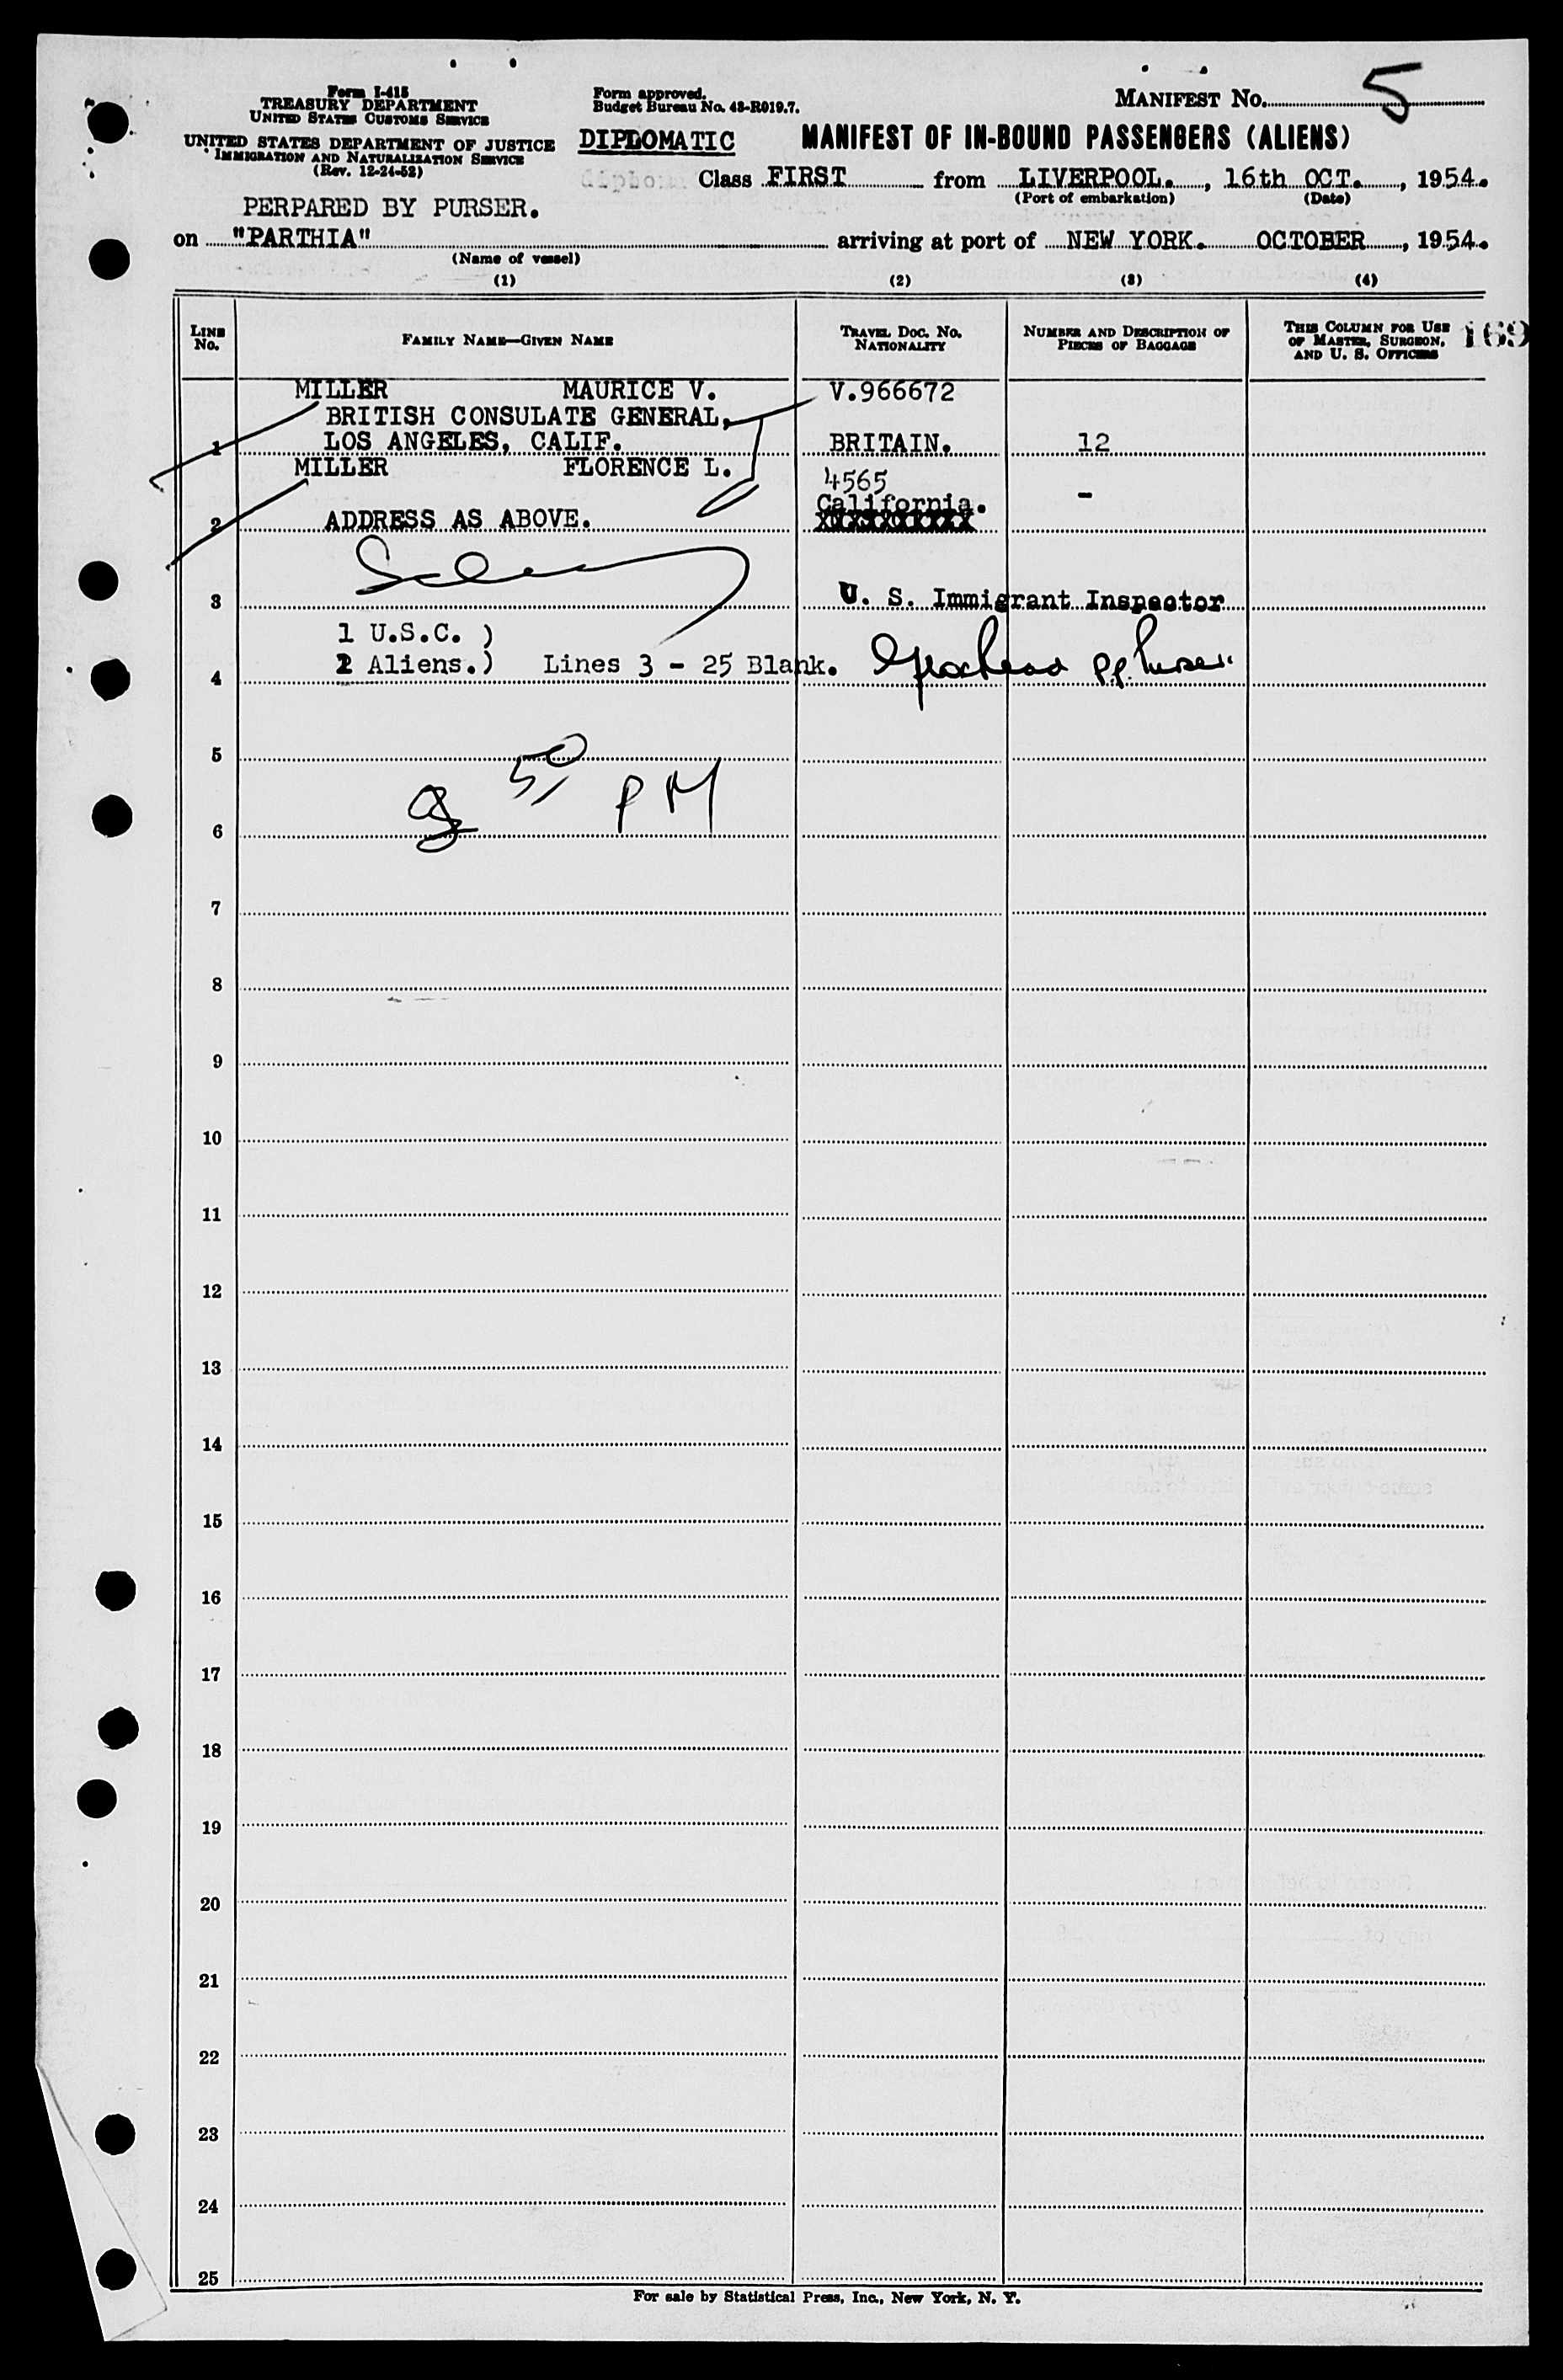 Form I-418
TREASURY DEPARTMENT
UNITED STATES CUSTOMS SERVICE
UNITED STATES DEPARTMENT OF JUSTICE
IMMIGRATION AND NATURALIZATION SERVICE
(Rev. 12-24-52)
Form approved.
Budget Bureau No. 43-R019.7.
MANIFEST No. 5
DIPLOMATIC MANIFEST OF IN-BOUND PASSENGERS (ALIENS)
Class FIRST from LIVERPOOL., 16th OCT., 1954.
(Port of embarkation) (Date)
PERPARED BY PURSER.
on "PARTHIA" arriving at port of NEW YORK. OCTOBER, 1954.
(Name of vessel)
(1) (2) (3) (4)
LINE No. FAMILY NAME—GIVEN NAME TRAVEL DOC. NO. NATIONALITY NUMBER AND DESCRIPTION OF PIECES OF BAGGAGE THIS COLUMN FOR USE OF MASTER, SURGEON, AND U. S. OFFICERS
169
MILLER MAURICE V. V.966672
BRITISH CONSULATE GENERAL,
1 LOS ANGELES, CALIF. BRITAIN. 12
MILLER FLORENCE L. 4565
California. -
2 ADDRESS AS ABOVE.
3 U. S. Immigrant Inspector
1 U.S.C. )
Aliens.) Lines 3 - 25 Blank.
4
5
50 PM
6
7
8
9
10
11
12
13
14
15
16
17
18
19
20
21
22
23
24
25
For sale by Statistical Press, Inc., New York, N. Y.